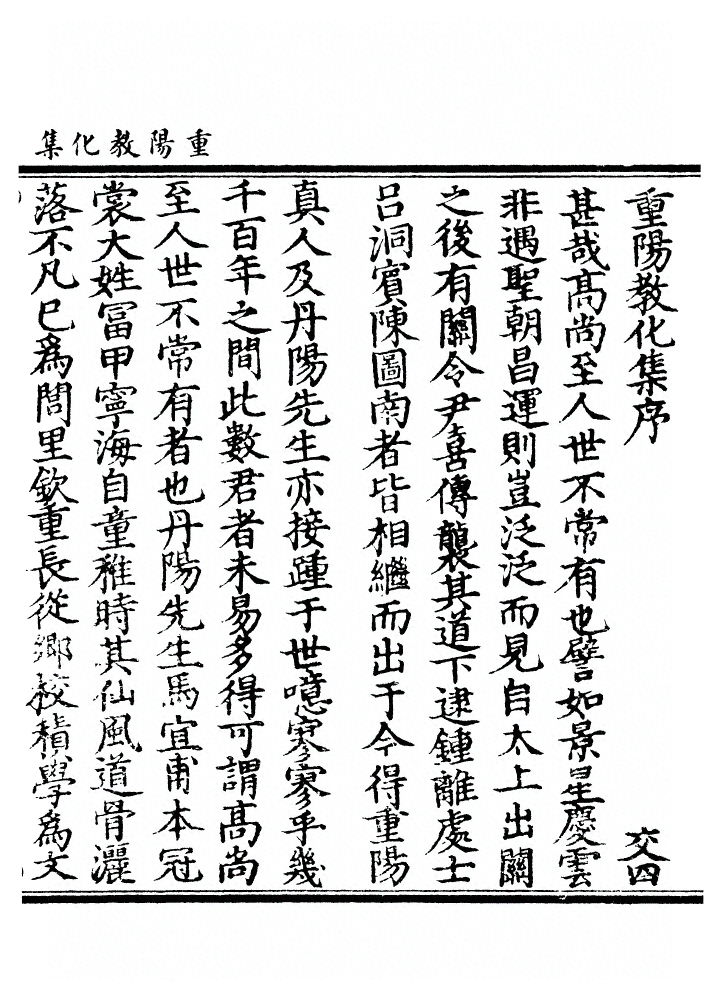 重陽教化集
重陽教化集序　交四
甚哉高尚至人世不常有也譬如景星慶雲
非遇聖朝昌運則豈泛泛而見自太上出關
之後有關令尹喜傳襲其道下逮鍾離處士
呂洞賓陳圖南者皆相繼而出于今得重陽
真人及丹陽先生亦接踵于世噫寥寥乎幾
千百年之間此數君者未易多得可謂高尚
至人世不常有者也丹陽先生馬宜甫本冠
裳大姓冨甲寧海自童稚時其仙風道骨灑
落不凡已為閭里欽重長從鄉校積學為文